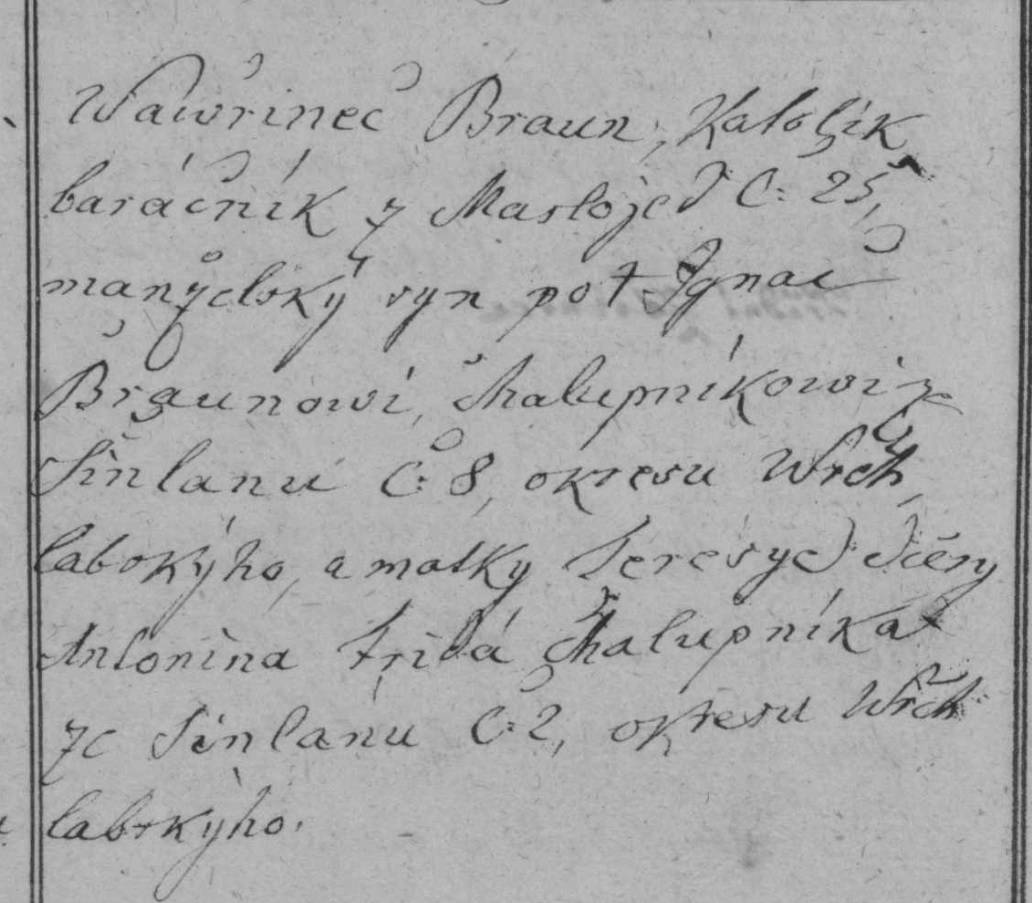 Wawřineč Braun, Katolík
baráčník z Maslojed C: 25,
manželský syn pot Ignac
Braunowi, chalupníkowi ze
Sinlanu C: 8, okresu Wrch,
labskýho, a matky Teresye dcery
Antonina chalupníka
ze Sinlánu C: 2, okresu Wrch
labskýho.